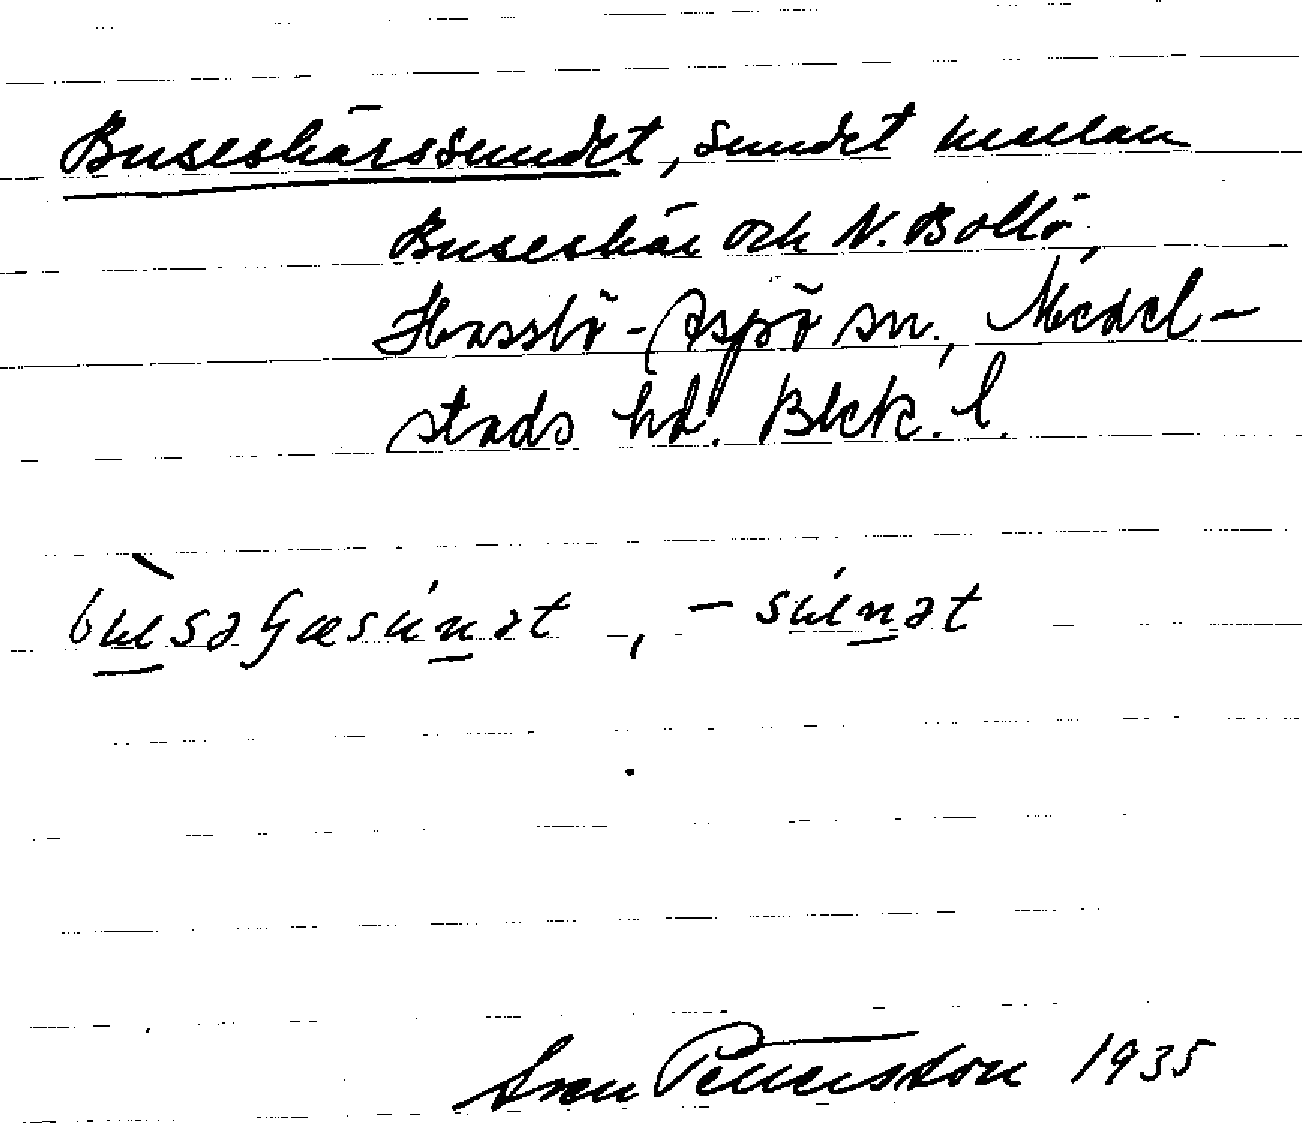 Buseskärssundet, sundet mellan
Buseskär och N. Bollö,
Hasslö-Aspö sn., Medel-
stads hd. Blek. l.
Sven Pettersson 1935